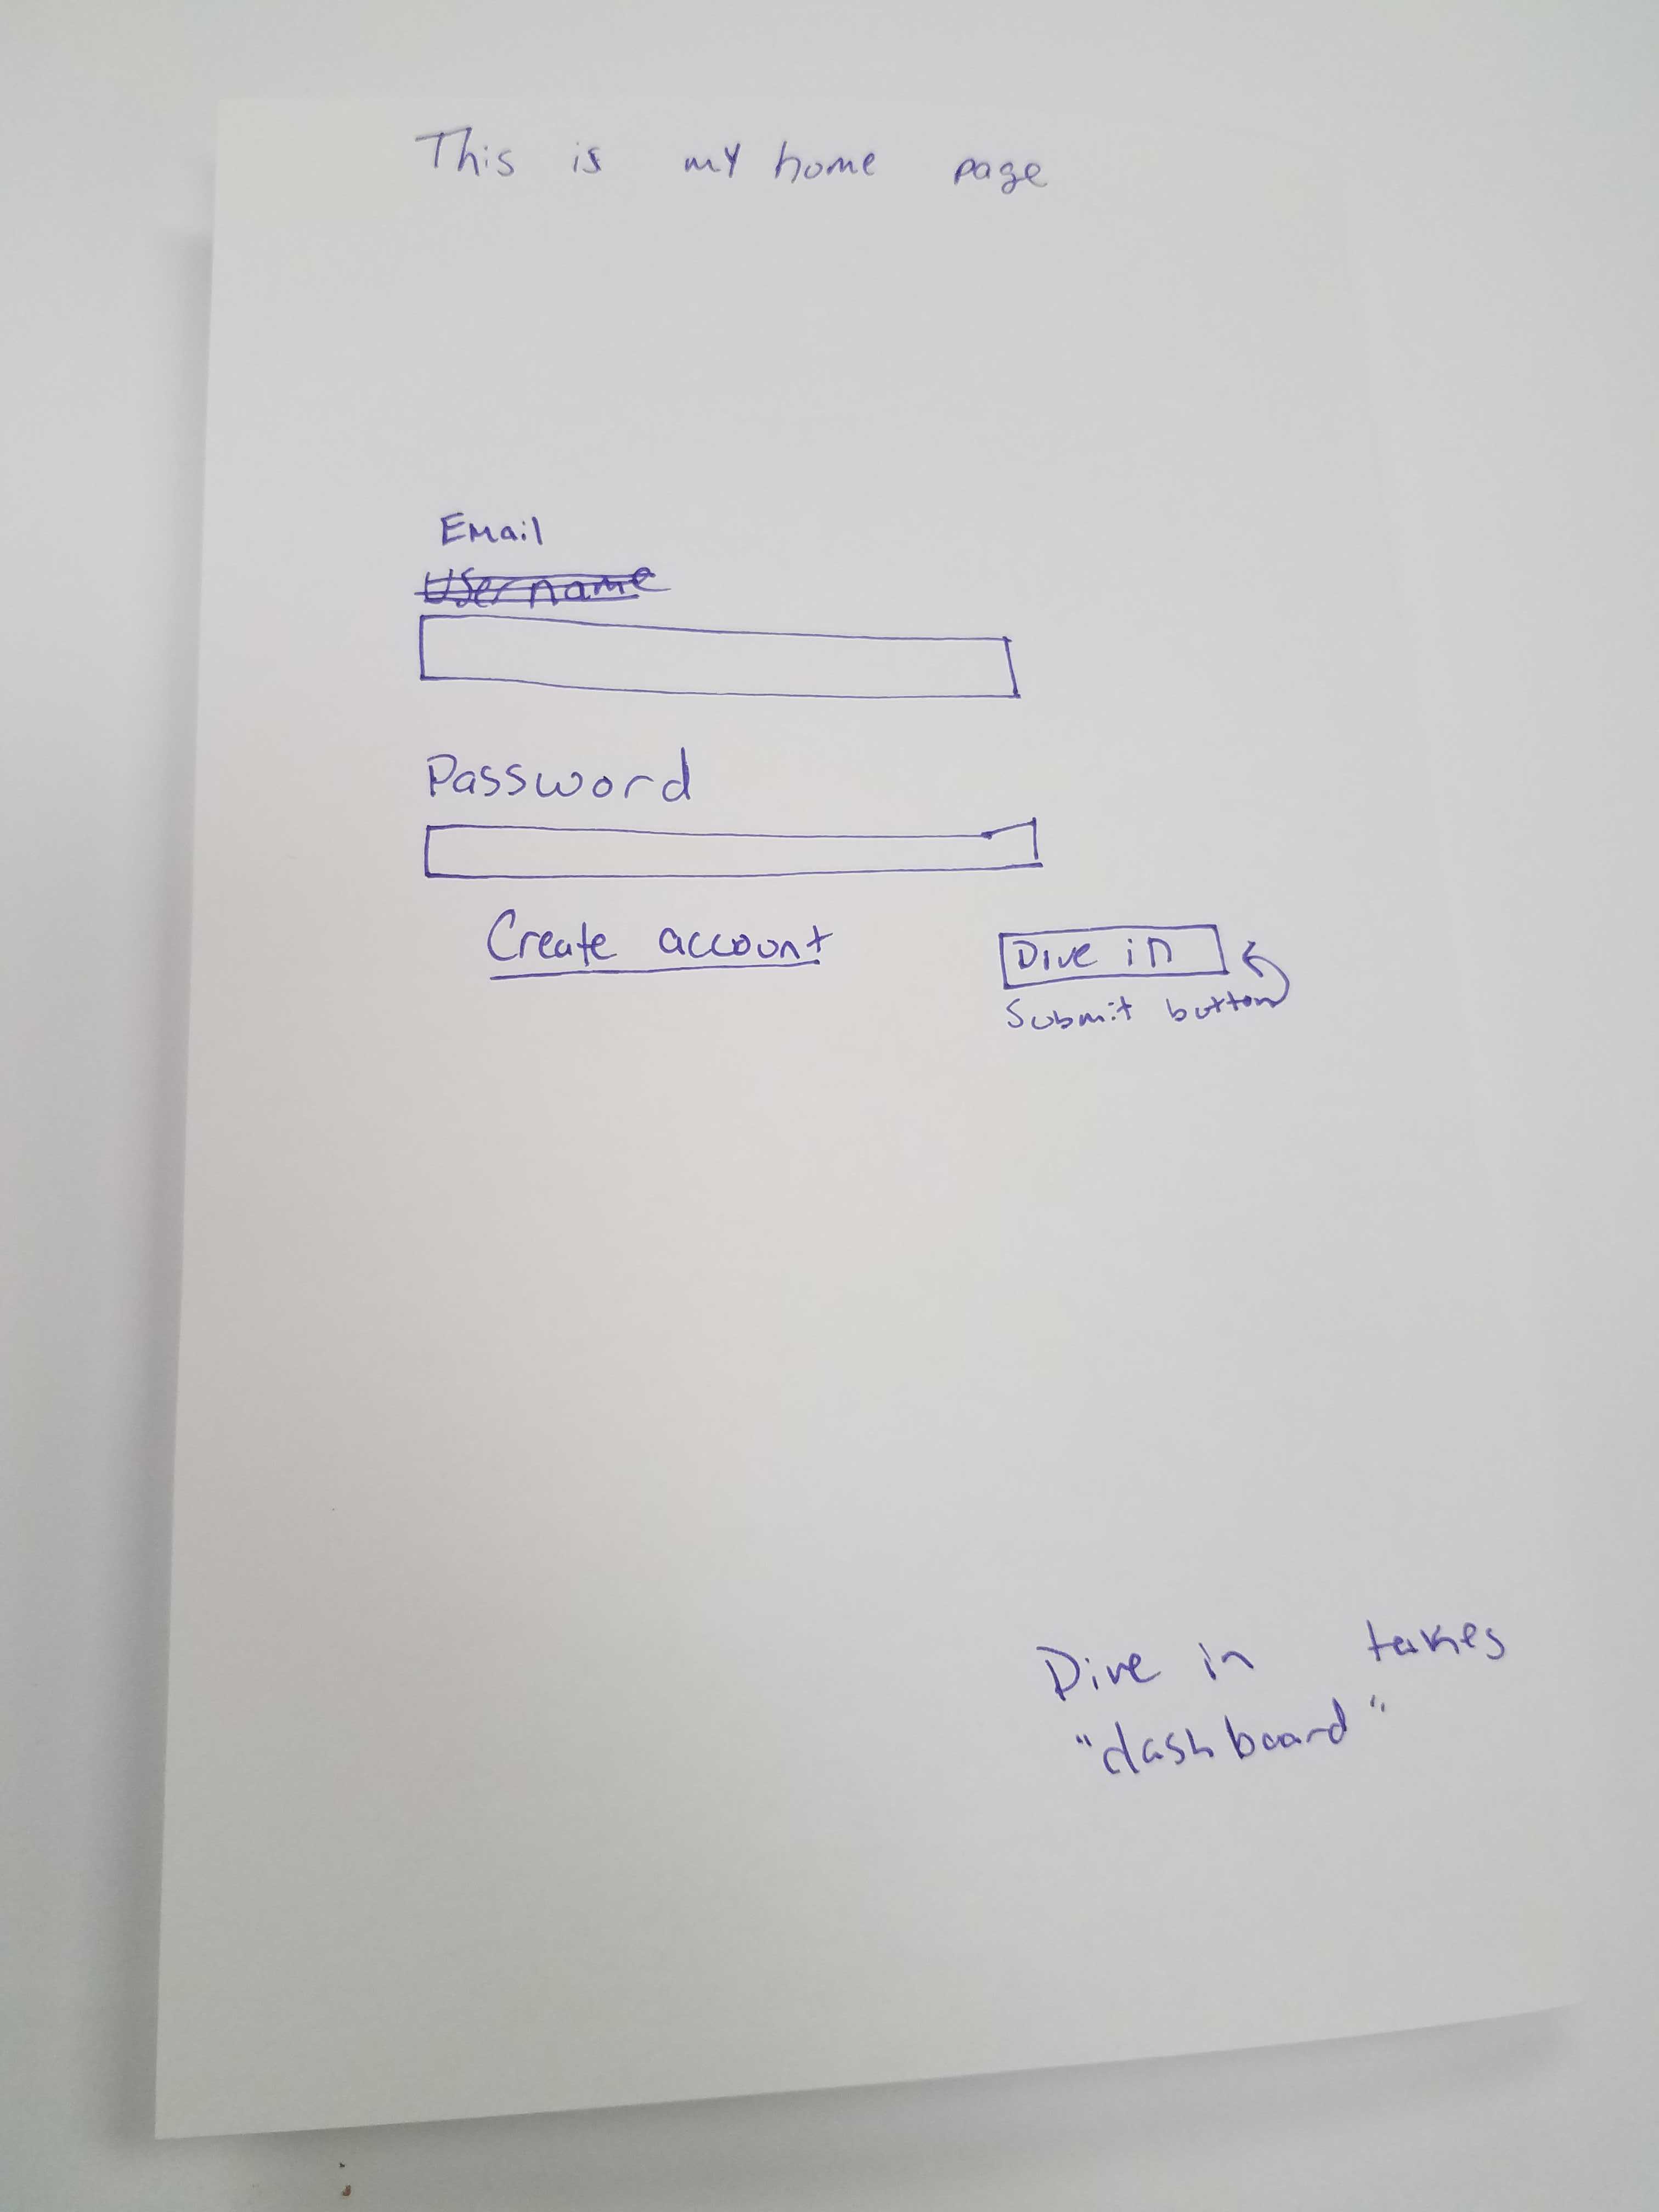 This is my home page
Email
Username
Password
Create account
Dive in
Submit button
Dive in takes
"dashboard"